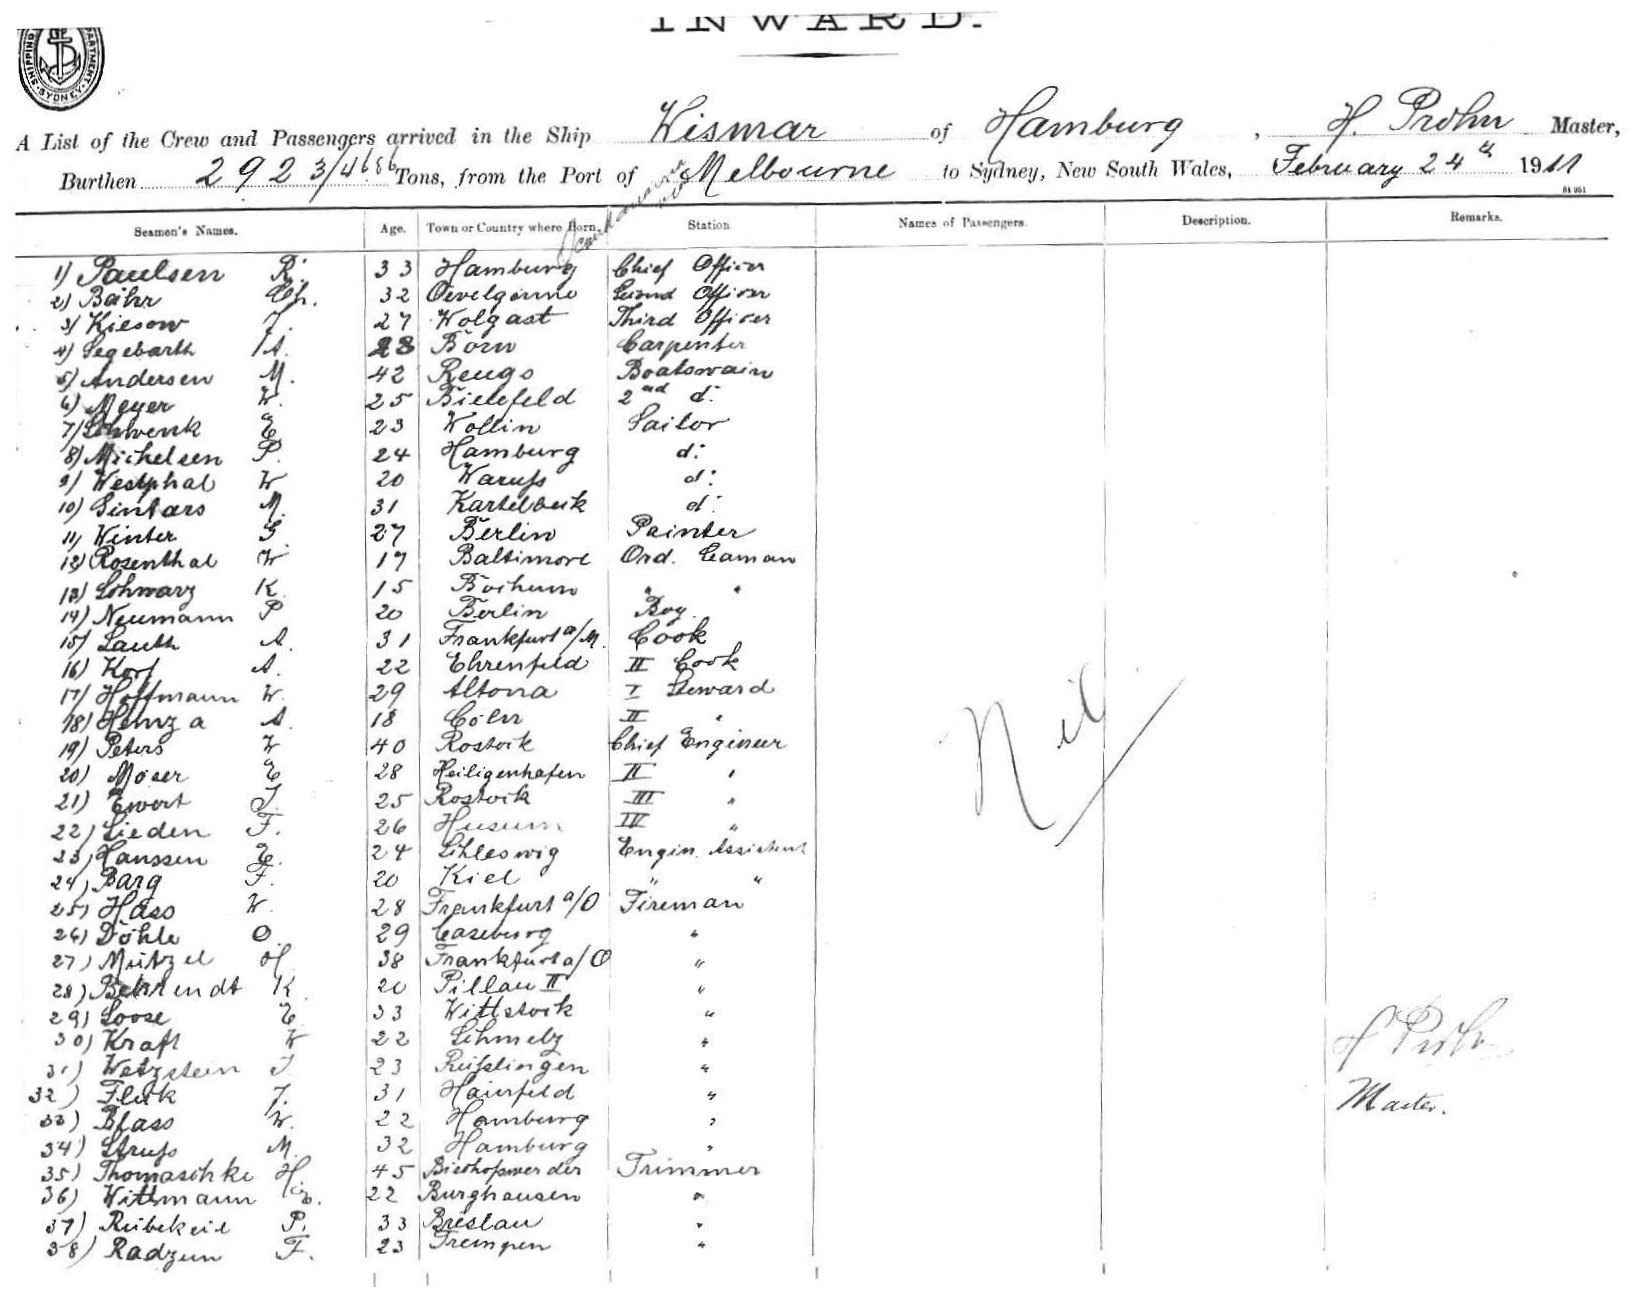 INWARD.
SHIPPING DEPARTMENT SYDNEY
A List of the Crew and Passengers arrived in the Ship Wismar of Hamburg, H. Prohn Master,
Burthen 2923/4686 Tons, from the Port of Melbourne to Sydney, New South Wales, February 24th 1911
Seamen's Names. Age. Town or Country where Born. Station. Names of Passengers. Description. Remarks.
1) Paulsen R. 33 Hamburg Chief Officer
2) Bähr Ch. 32 Oevelgönne Second Officer
3) Kiesow 27 Wolgast Third Officer
4) Segebarth A. 28 Born Carpenter
5) Andersen M. 42 Boatswain
6) Meyer W. 25 Bielefeld 2nd d:
7) Schwenk E 23 Wollin Sailor
8) Michelsen P. 24 Hamburg d:
9) Westphal W 20 d:
10) Sintars M. 31 d:
11) Winter G. 27 Berlin Painter
12) Rosenthal W 17 Baltimore Ord. Seaman
13) Schwarz K. 15 Bochum " "
14) Neumann P 20 Berlin Boy
15) Lauth A. 31 Frankfurt a/M. Cook
16) Korf A. 22 Ehrenfeld II Cook
17) Hoffmann W. 29 Altona I Steward
18) Heinza A. 18 Cöln II "
19) Peters W 40 Rostock Chief Engineer
20) Möser E 28 Heiligenhafen II "
21) Ewert J. 25 Rostock III "
22) Lieden F. 26 Husum IV "
23) Hanssen E. 24 Schleswig Engin. Assistent
24) Barg F. 20 Kiel " "
25) Hass W. 28 Frankfurt a/O Fireman
26) Döhle O. 29 Caseburg "
27) Mützel H. 38 Frankfurt a/O "
28) Behrendt K. 20 Pillau II "
29) Loose E. 33 Wittstock "
30) Kraft W 22 Schmelz "
31) Wetzstein J 23 "
32) Fleck J. 31 Hainfeld "
33) Blass W. 22 Hamburg "
34) Struß M. 32 Hamburg "
35) Thomaschke H 45 Bischofswerder Trimmer
36) Wittmann 22 Burghausen "
37) Rübekeil P. 33 Breslau "
38) Radzun F. 23 Trempen "
Nil
H Prohn
Master.